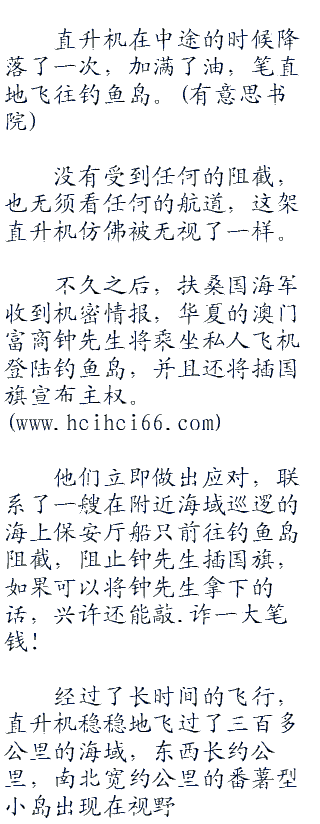 直升机在中途的时候降
落了一次，加满了油，笔直
地飞往钓鱼岛。(有意思书
院)
没有受到任何的阻截，
也无须看任何的航道，这架
直升机仿佛被无视了一样。
不久之后，扶桑国海军
收到机密情报，华夏的澳门
富商钟先生将乘坐私人飞机
登陆钓鱼岛，并且还将插国
旗宣布主权。
(www.hcihci66.com)
他们立即做出应对，联
系了一艘在附近海域巡逻的
海上保安厅船只前往钓鱼岛
阻截，阻止钟先生插国旗，
如果可以将钟先生拿下的
话，兴许还能敲.诈一大笔
钱!
经过了长时间的飞行，
直升机稳稳地飞过了三百多
公里的海域，东西长约公
里，南北宽约公里的番薯型
小岛出现在视野